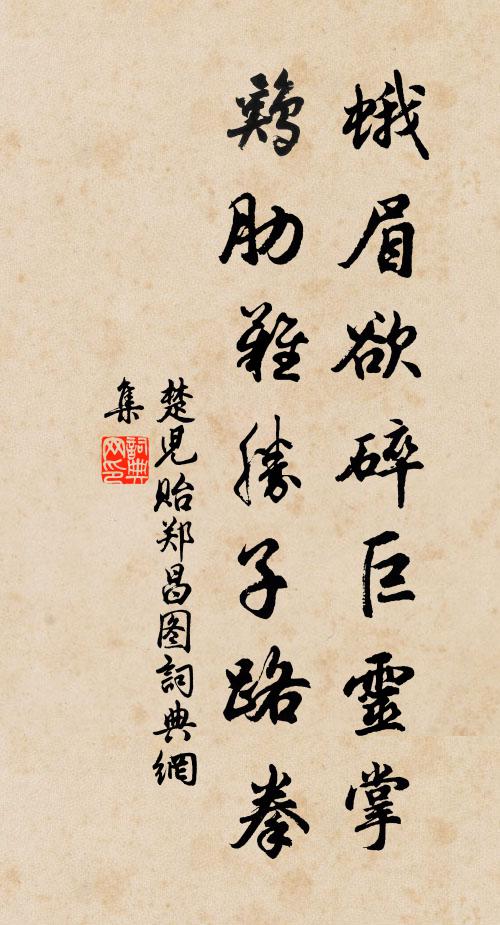 蛾眉欲碎巨靈掌
鷄肋難勝子路拳
楚児貽郑昌图詞典網
集
詞典
网印